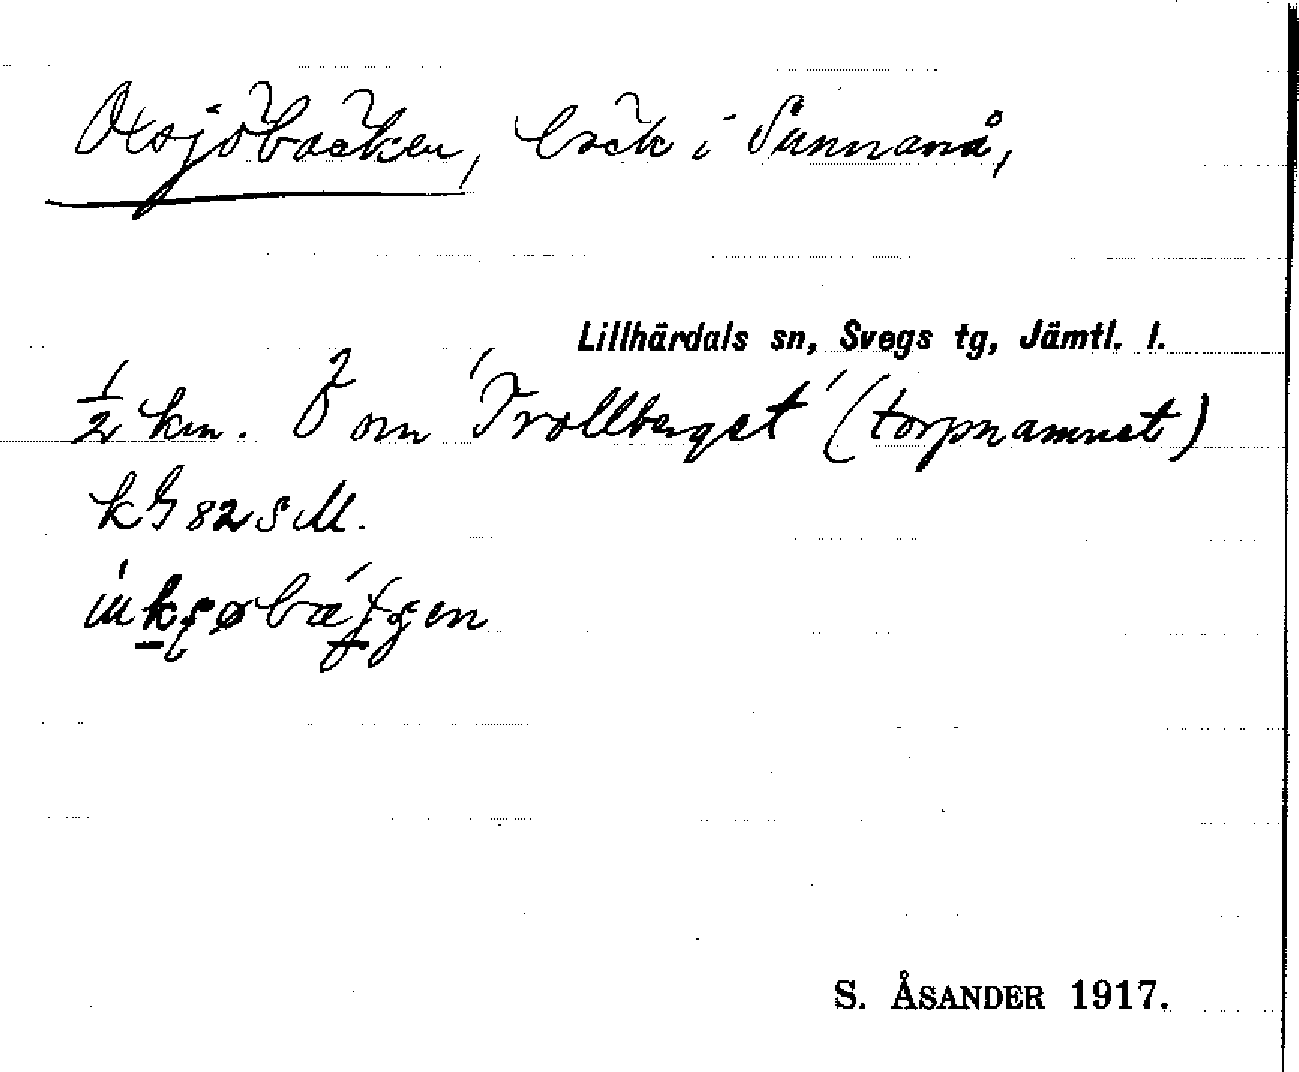 Oxsjöbäcken, bäck i Sunnanå,
Lillhärdals sn, Svegs tg, Jämtl. l.
½ km. Ö om 'Trollberget' (torpnamnet)
kG 82 S M.
S. ÅSANDER 1917.